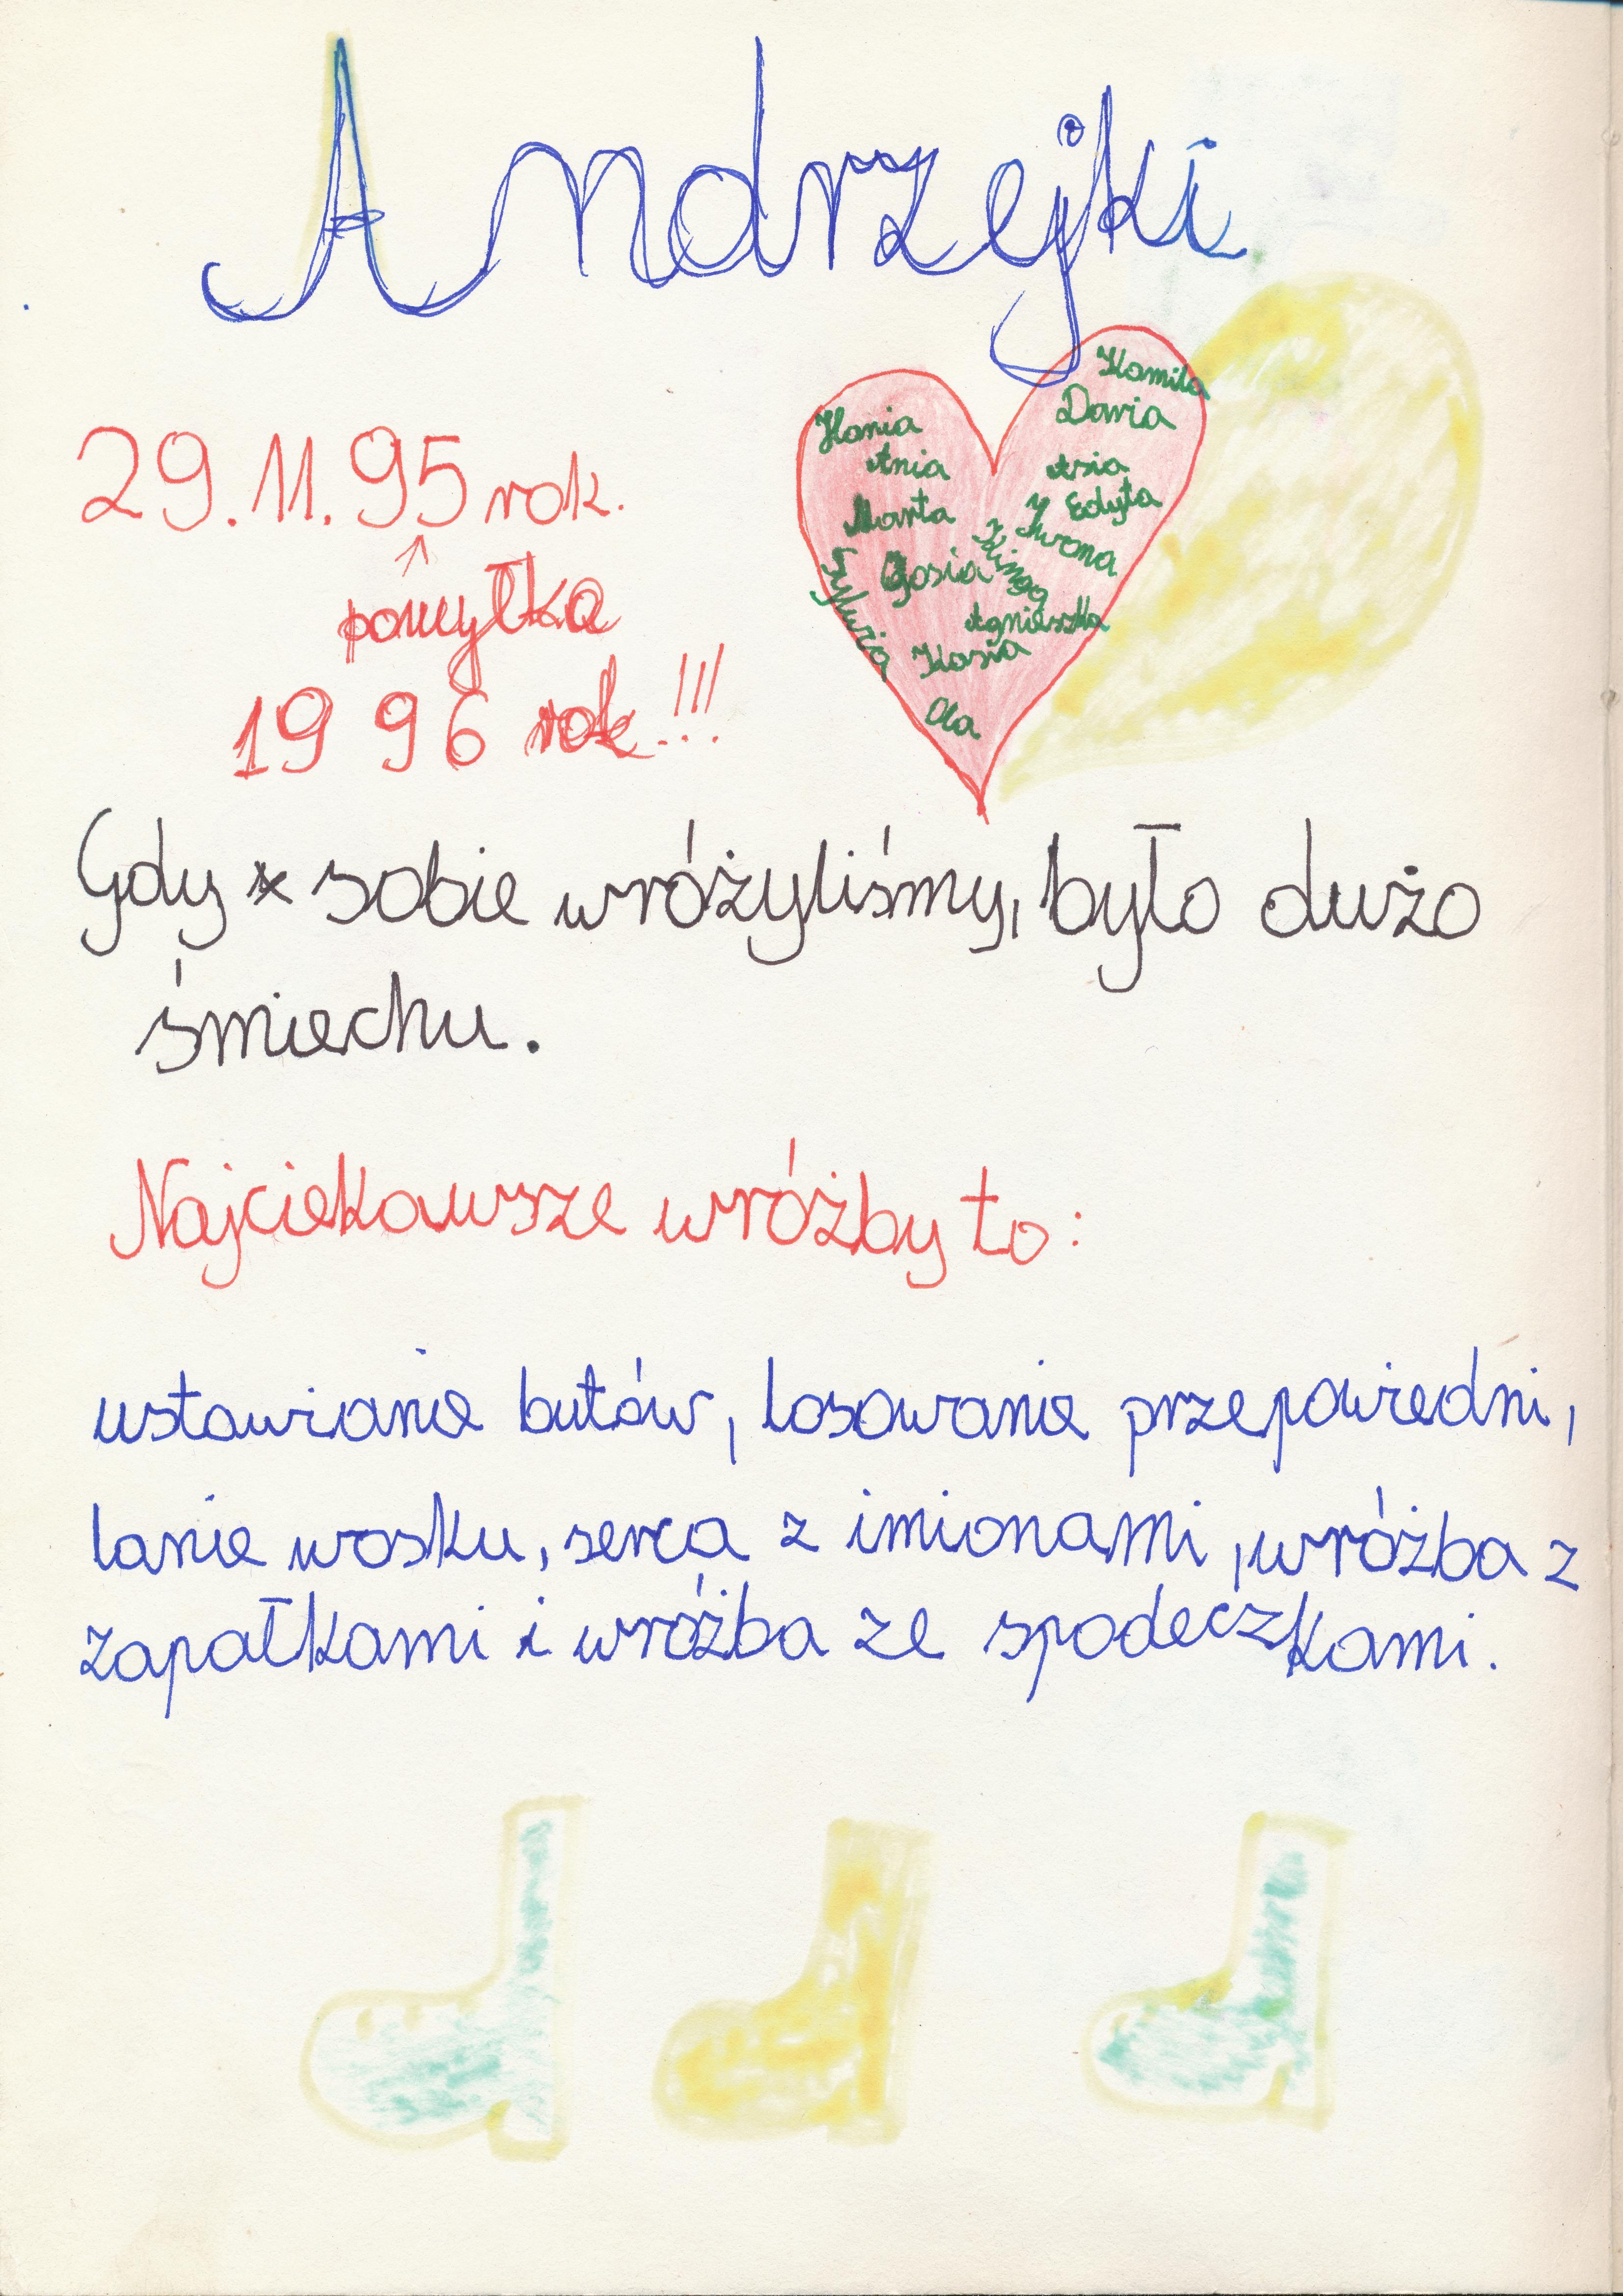 Andrzejki
29.11.95 rok.
pomyłka
1996 rok!!!
Kamila
Daria
Hania
Ania
Asia
Marta
Edyta
Iwona
Kinga
Gosia
Sylwia
Agnieszka
Kasia
Ola
Gdy sobie wróżyliśmy, było dużo
śmiechu.
Najciekawsze wróżby to:
ustawianie butów, losowanie przepowiedni,
lanie wosku, serca z imionami, wróżba z
zapałkami i wróżba ze spodeczkami.